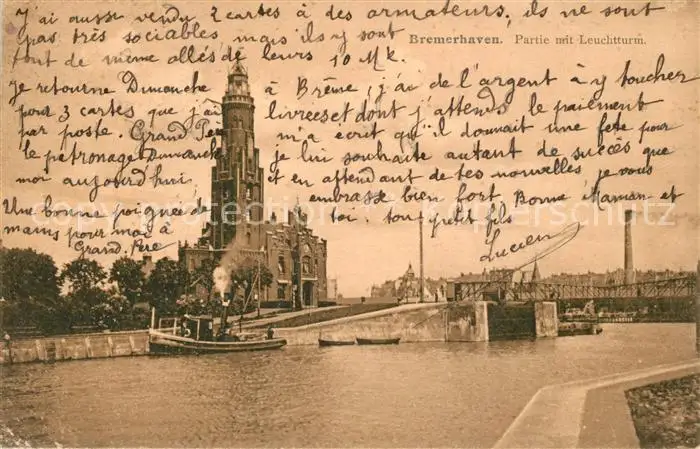 J'ai aussi vendu 2 cartes à des armateurs, ils ne sont
pas très sociables mais ils y sont
Bremerhaven. Partie mit Leuchtturm.
tout de même allés de leurs 10 Mk.
Je retourne Dimanche à Brême, j'ai de l'argent à y toucher
pour 3 cartes que j'ai livrées et dont j'attends le paiement
par poste. Grand Père m'a ecrit qu'il donnait une fête pour
le patronage Dimanche je lui souhaite autant de succès que
moi aujourd'hui et en attendant de tes nouvelles, je vous
embrasse bien fort Bonne Maman et
toi ton petit fils
Lucien
Une bonne poignée de
mains pour moi à
Grand Père